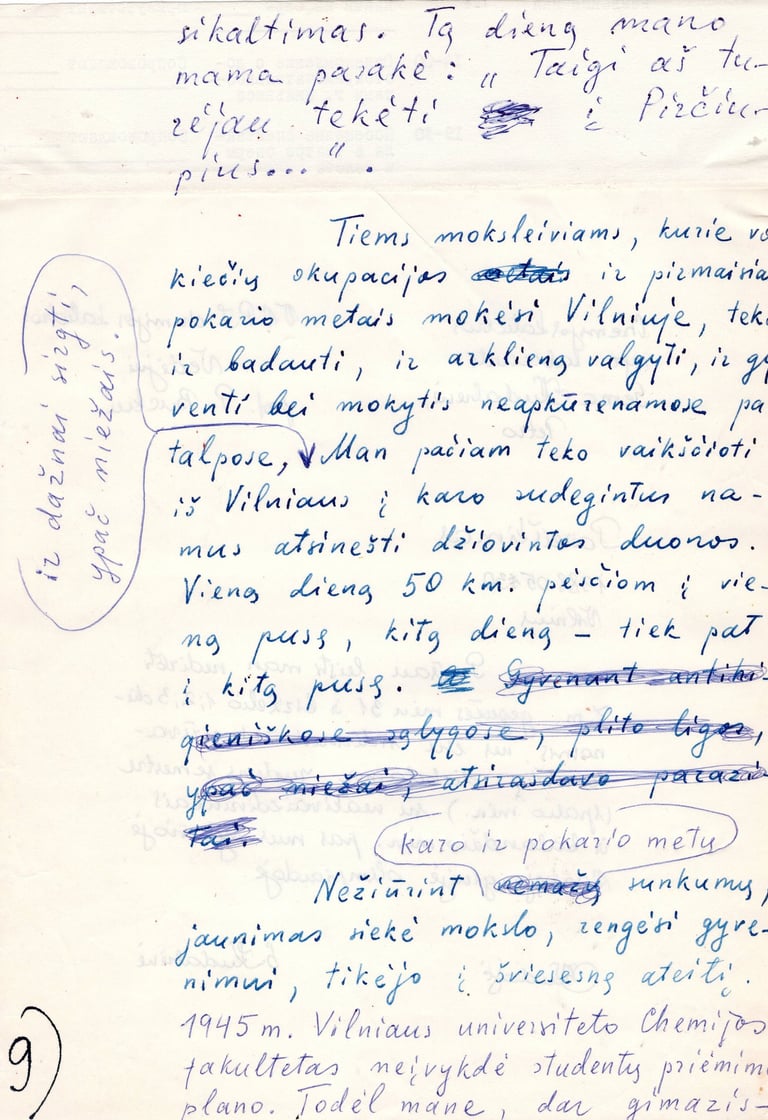 sikaltimas. Tą dieną mano
mama pasakė: „Taigi aš tu-
rėjau tekėti į Pirčiu-
pius...".
Tiems moksleiviams, kurie vo
kiečių okupacijos metais ir pirmaisia
pokario metais mokėsi Vilniuje, tek
ir badauti, ir arklieną valgyti, ir gy
venti bei mokytis neapkūrenamose pa
talpose, Man pačiam teko vaikščioti
ir dažnai sirgti,
ypač niežais.
iš Vilniaus į karo sudegintus na-
mus atsinešti džiovintos duonos.
Vieną dieną 50 km. pėsčiom į vie-
ną pusę, kitą dieną – tiek pat
į kitą pusę. Gyvenant antihi-
gieniškose sąlygose, plito ligos,
ypač niežai, atsirasdavo parazi-
tai.
karo ir pokario metų
Nežiūrint nemažų sunkumų,
jaunimas siekė mokslo, rengėsi gyve-
nimui, tikėjo į šviesesnę ateitį.
1945 m. Vilniaus universiteto Chemijos
fakultetas neįvykdė studentų priėmim
plano. Todėl mane, dar gimazis-
9)